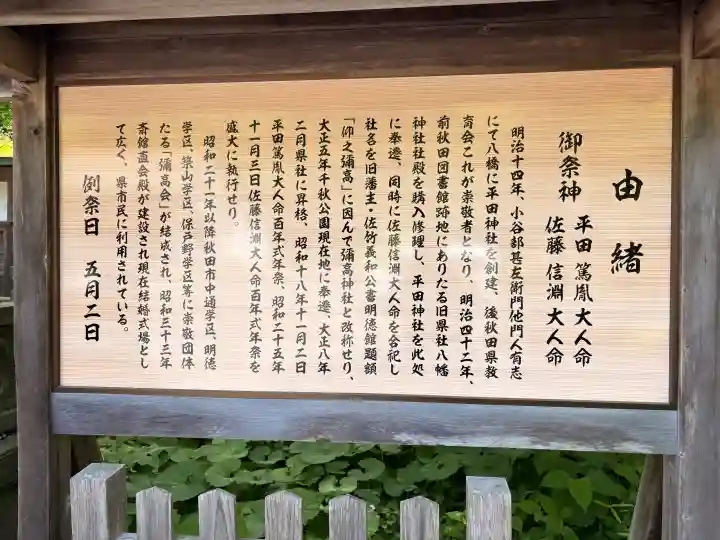 由緒
御祭神 平田篤胤大人命
佐藤信淵大人命
明治十四年、小谷部甚左衛門他門人有志
にて八橋に平田神社を創建、後秋田県教
育会これが崇敬者となり、明治四十二年、
前秋田図書館跡地にありたる旧県社八幡
神社社殿を購入修理し、平田神社を此処
に奉遷、同時に佐藤信淵大人命を合祀し
社名を旧藩主・佐竹義和公書明徳館題額
「仰之彌高」に因んで彌高神社と改称せり、
大正五年千秋公園現在地に奉遷、大正八年
二月県社に昇格、昭和十八年十一月二日
平田篤胤大人命百年式年祭、昭和二十五年
十一月三日佐藤信淵大人命百年式年祭を
盛大に執行せり。
昭和二十一年以降秋田市中通学区、明徳
学区、築山学区、保戸野学区等に崇敬団体
たる「彌高会」が結成され、昭和三十三年
斎館直会殿が建設され現在結婚式場とし
て広く、県市民に利用されている。
例祭日 五月二日